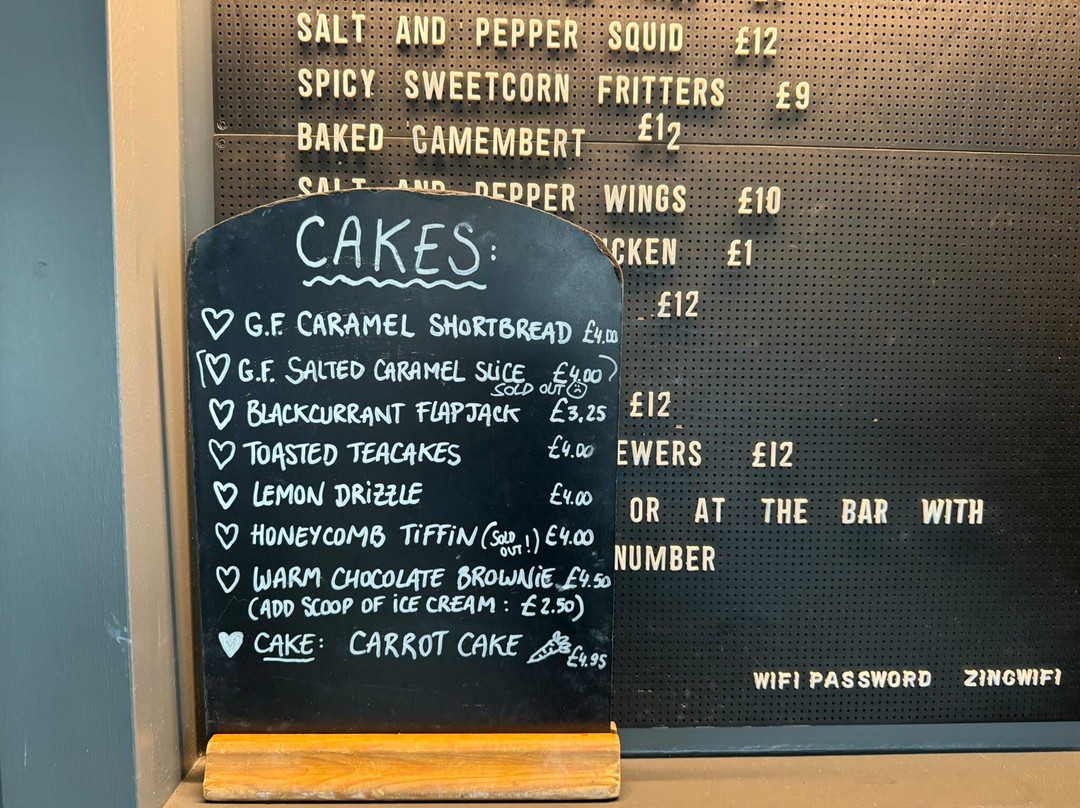 SALT AND PEPPER SQUID £12
SPICY SWEETCORN FRITTERS £9
BAKED CAMEMBERT £12
SALT AND PEPPER WINGS £10
£1
£12
£12
£12
OR AT THE BAR WITH
NUMBER
WIFI PASSWORD ZINGWIFI
CAKES:
G.F. CARAMEL SHORTBREAD £4.00
(G.F. SALTED CARAMEL SLICE £4.00)
SOLD OUT
BLACKCURRANT FLAPJACK £3.25
TOASTED TEACAKES £4.00
LEMON DRIZZLE £4.00
HONEYCOMB TIFFIN (SOLD OUT!) £4.00
WARM CHOCOLATE BROWNIE £4.50
(ADD SCOOP OF ICE CREAM: £2.50)
CAKE: CARROT CAKE £4.95